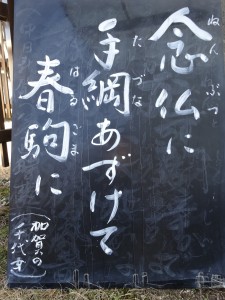 ねんぶつ
念仏に
たづな
手綱あずけて
はるごま
春駒に
(加賀の
千代